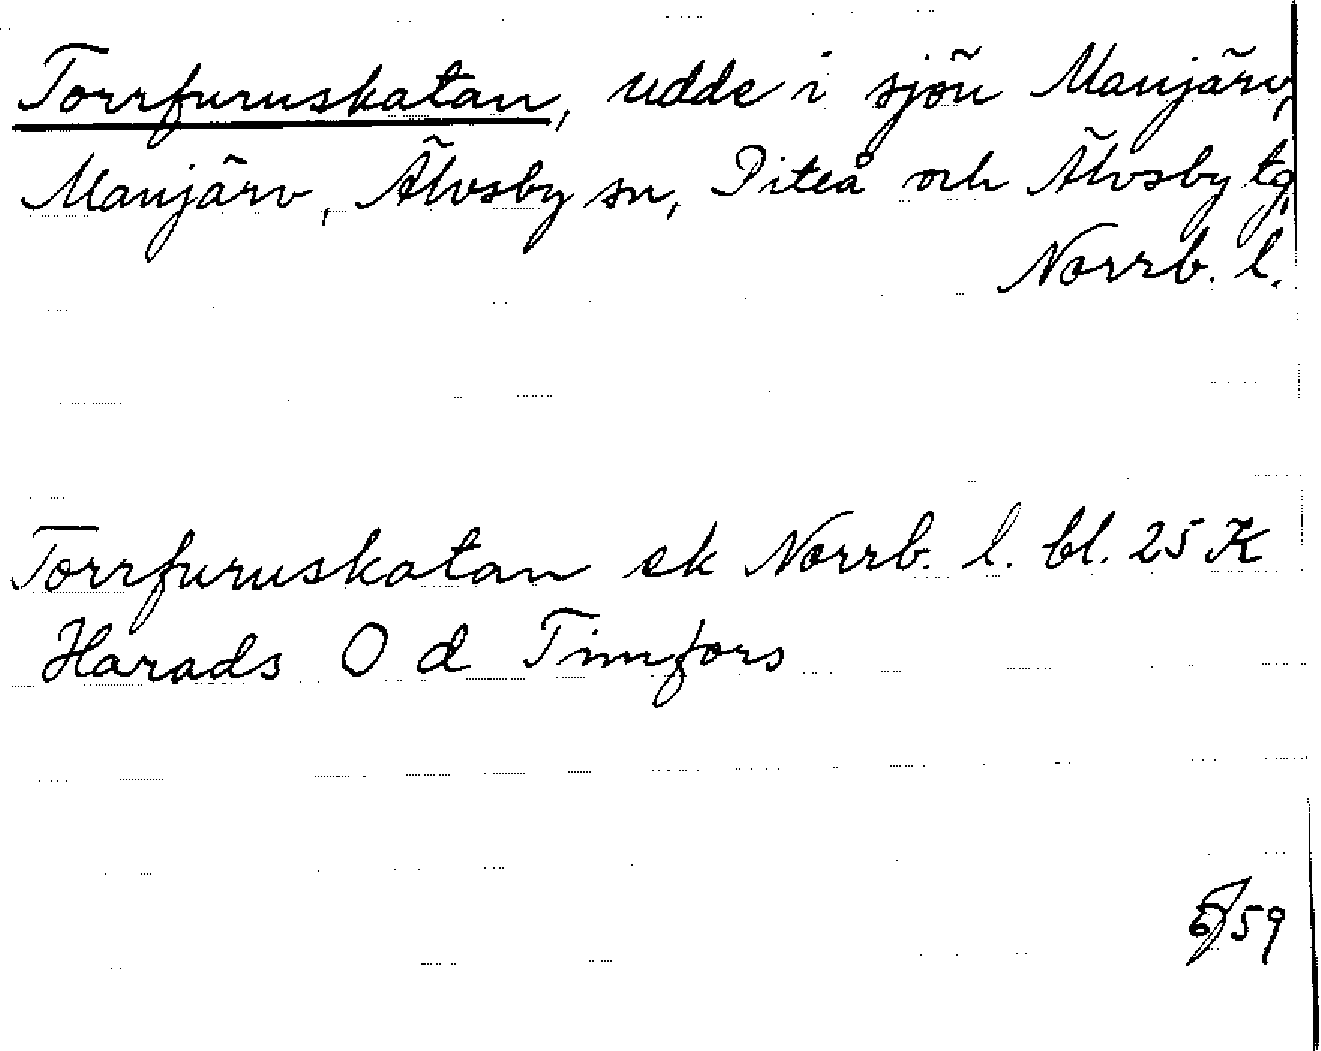 Torrfuruskatan, udde i sjön Manjärv,
Manjärv, Älvsby sn, Piteå och Älvsby tg,
Norrb. l.
Torrfuruskatan ek Norrb. l. bl. 25 K
Harads O d Timfors
59